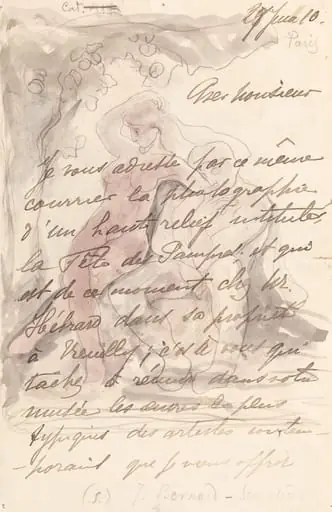 Cat.
28 Juin 10.
Paris
Cher Monsieur
Je vous adresse par ce même
courrier la photographie
d'un haut relief intitulé,
la Fête des Pampres et qui
est de ce moment chez Mr.
Hébrard dans sa propriété
à Neuilly ; c'est à vous qui
tachez de réunir dans votre
musée les œuvres les plus
typiques des artistes contem
-porains que je viens offrir
(s.) J. Bernard -